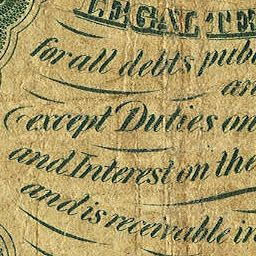 LEGAL TE
for all debts publ
an
except Duties on
and Interest on the
and is receivable in